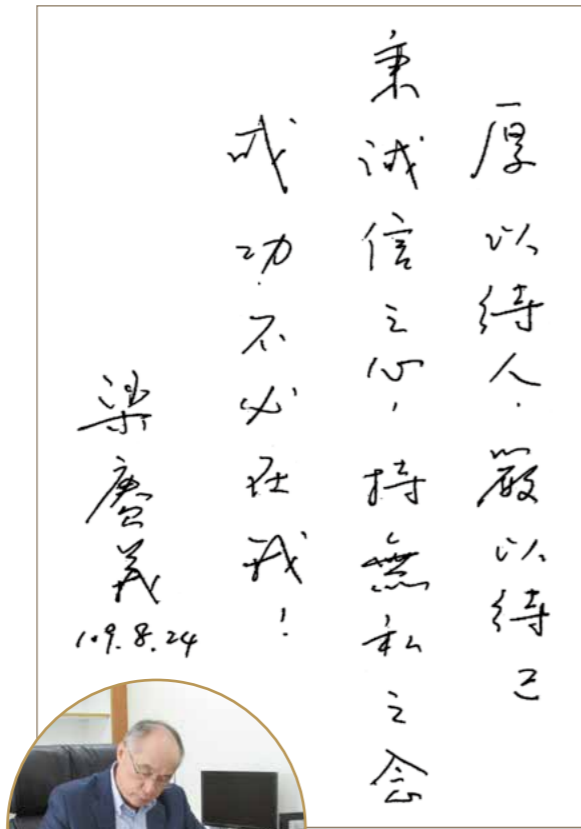 厚以待人，嚴以待己
秉誠信之心，持無私之念
成功不必在我！
梁賡義
109.8.24